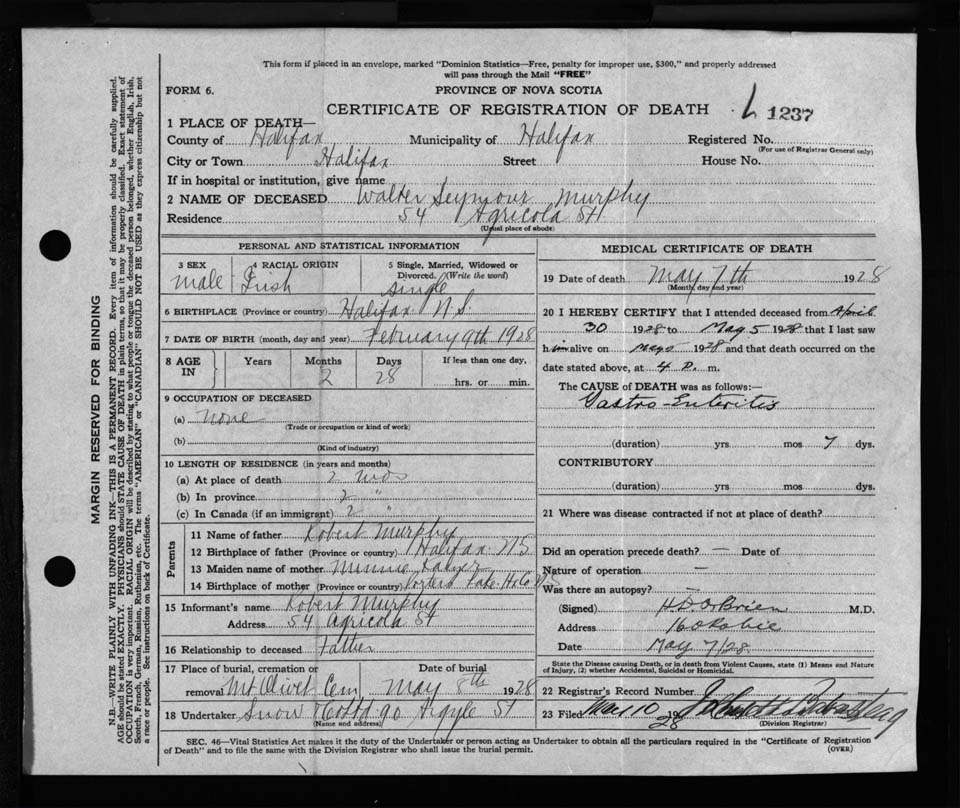 This form if placed in an envelope, marked "Dominion Statistics—Free, penalty for improper use, $300," and properly addressed
will pass through the Mail "FREE"
FORM 6.
PROVINCE OF NOVA SCOTIA
CERTIFICATE OF REGISTRATION OF DEATH
1237
1 PLACE OF DEATH—
County of Halifax Municipality of Halifax Registered No.
(For use of Registrar General only)
City or Town Halifax Street House No.
If in hospital or institution, give name
2 NAME OF DECEASED Walter Seymour Murphy
Residence 54 Agricola St
(Usual place of abode)
PERSONAL AND STATISTICAL INFORMATION
3 SEX 4 RACIAL ORIGIN 5 Single, Married, Widowed or
Divorced. (Write the word)
Male Irish single
6 BIRTHPLACE (Province or country) Halifax N.S.
7 DATE OF BIRTH (month, day and year) February 9th 1928
8 AGE IN Years Months Days If less than one day,
2 28 hrs. or min.
9 OCCUPATION OF DECEASED
(a) none
(Trade or occupation or kind of work)
(b)
(Kind of industry)
10 LENGTH OF RESIDENCE (in years and months)
(a) At place of death 2 mos
(b) In province 2 "
(c) In Canada (if an immigrant) 2 "
Parents
11 Name of father Robert Murphy
12 Birthplace of father (Province or country) Halifax N.S.
13 Maiden name of mother Minnie
14 Birthplace of mother (Province or country) Porters Lake N.S
15 Informant's name Robert Murphy
Address 54 Agricola St
16 Relationship to deceased Father
17 Place of burial, cremation or Date of burial
removal Mt Olivet Cem May 8th 1928
18 Undertaker Snow & Co Ltd 90 Argyle St
(Name and address)
MEDICAL CERTIFICATE OF DEATH
19 Date of death May 7th 1928
(Month, day and year)
20 I HEREBY CERTIFY that I attended deceased from April
30 1928 to May 5 1928 that I last saw
him alive on May 5 1928 and that death occurred on the
date stated above, at 4 P. m.
The CAUSE of DEATH was as follows:—
Gastro-Enteritis
(duration) yrs mos 7 dys.
CONTRIBUTORY
(duration) yrs mos dys.
21 Where was disease contracted if not at place of death?
Did an operation precede death? — Date of
Nature of operation —
Was there an autopsy? —
(Signed) H D O'Brien M.D.
Address 160 Robie
Date May 7/28
State the Disease causing Death, or in death from Violent Causes, state (1) Means and Nature
of Injury, (2) whether Accidental, Suicidal or Homicidal.
22 Registrar's Record Number
23 Filed May 10 28
(Division Registrar)
SEC. 46—Vital Statistics Act makes it the duty of the Undertaker or person acting as Undertaker to obtain all the particulars required in the "Certificate of Registration
of Death" and to file the same with the Division Registrar who shall issue the burial permit.
(OVER)
MARGIN RESERVED FOR BINDING
N.B.—WRITE PLAINLY WITH UNFADING INK—THIS IS A PERMANENT RECORD. Every item of information should be carefully supplied.
AGE should be stated EXACTLY. PHYSICIANS should STATE CAUSE OF DEATH in plain terms, so that it may be properly classified. Exact statement of
OCCUPATION is very important. RACIAL ORIGIN will be described by stating to what people or tongue the deceased person belonged, whether English, Irish,
Scotch, French, German, Russian, Ruthenian, etc. The terms "AMERICAN" or "CANADIAN" SHOULD NOT BE USED as they express citizenship but not
a race or people. See instructions on back of Certificate.